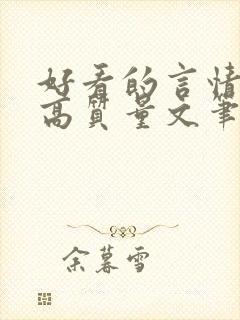 好看的言情
高质量文笔
余暮雪